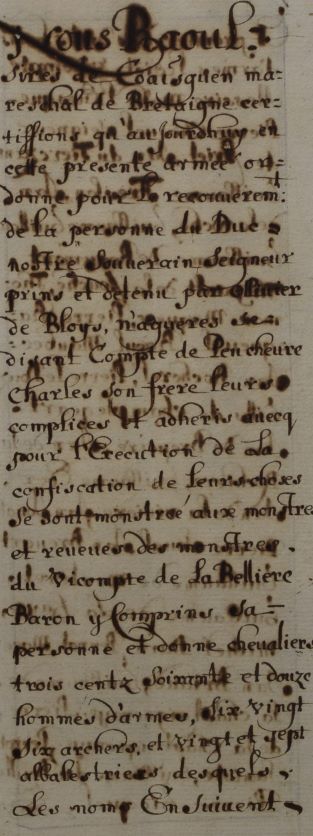 y sous Raoul.
sires de Coaisquen ma=
reschal de Bretaigne cer=
tiffions qu'au Jourdhuy en
ceste presente armee or=
donne pour le recouuerem:t
de la personne du Duc
nostre Souuerain Seigneur
prins et detenu par Oliuier
de Bloys, n'agueres se
disant Compte de Pencheure
Charles son frere leurs
complices et adheris auecq
pour l'Execution de la
confiscation de leurs choses
se sont monstree aux monstres
et reueues des monstres.
du Vicompte de La Belliere
Baron y Comprins sa
personne et donne cheualiers
trois centz Soixante et douze
hommes d'armes, six vingt
six archers, et vingt et sept
albalestriers desquels
Les noms En Suiuent